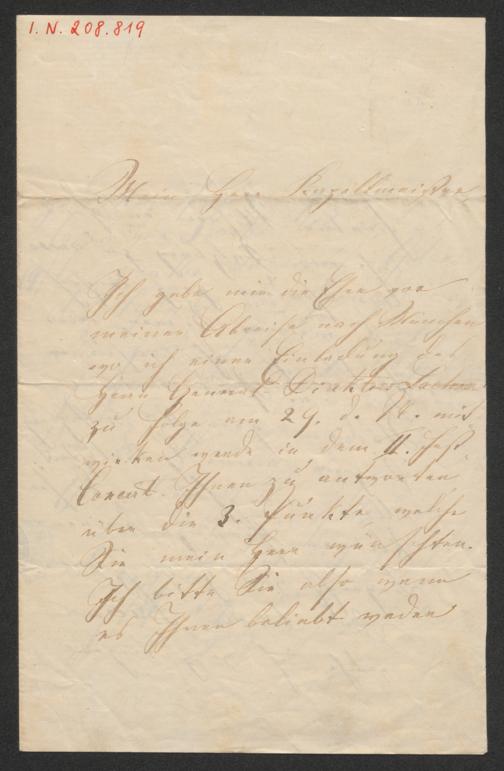 I. N. 208.819
Mein Herr Kapellmeister
Ich gebe mir die Ehre vor
meiner Abreise nach München
wo ich einer Einladung des
Herrn General-Direktors Lachner
zu Folge am 29. d. M. mit
wirken werde in dem II. Fest
Concert Ihnen zu antworten
über die 3. Punkte, welche
Sie mein Herr wünschten.
Ich bitte Sie also wenn
es Ihnen beliebt